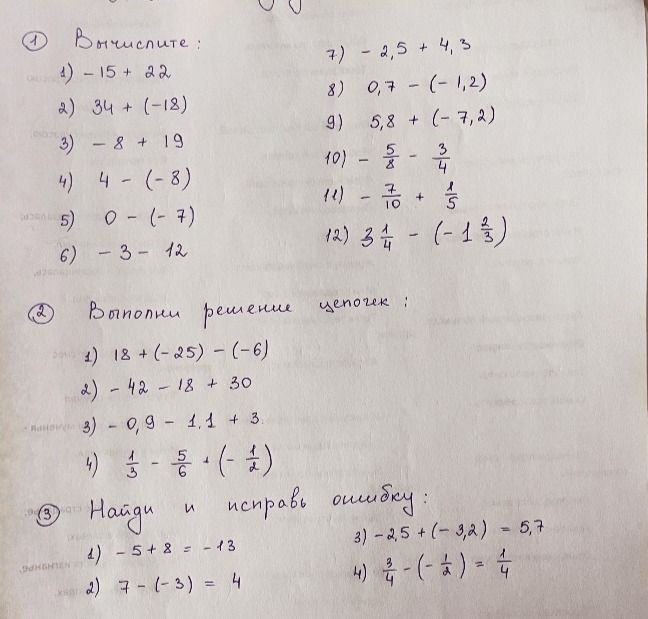 ① Вычислите:
1) -15 + 22
2) 34 + (-18)
3) - 8 + 19
4) 4 - (-8)
5) 0 - (- 7)
6) - 3 - 12
7) - 2,5 + 4,3
8) 0,7 - (- 1,2)
9) 5,8 + (- 7,2)
10) - 5/8 - 3/4
11) - 7/10 + 1/5
12) 3 1/4 - (- 1 2/3)
② Выполни решение цепочек:
1) 18 + (-25) - (-6)
2) - 42 - 18 + 30
3) - 0,9 - 1,1 + 3
4) 1/3 - 5/6 + (- 1/2)
③ Найди и исправь ошибку:
1) - 5 + 8 = -13
2) 7 - (-3) = 4
3) -2,5 + (- 3,2) = 5,7
4) 3/4 - (- 1/2) = 1/4